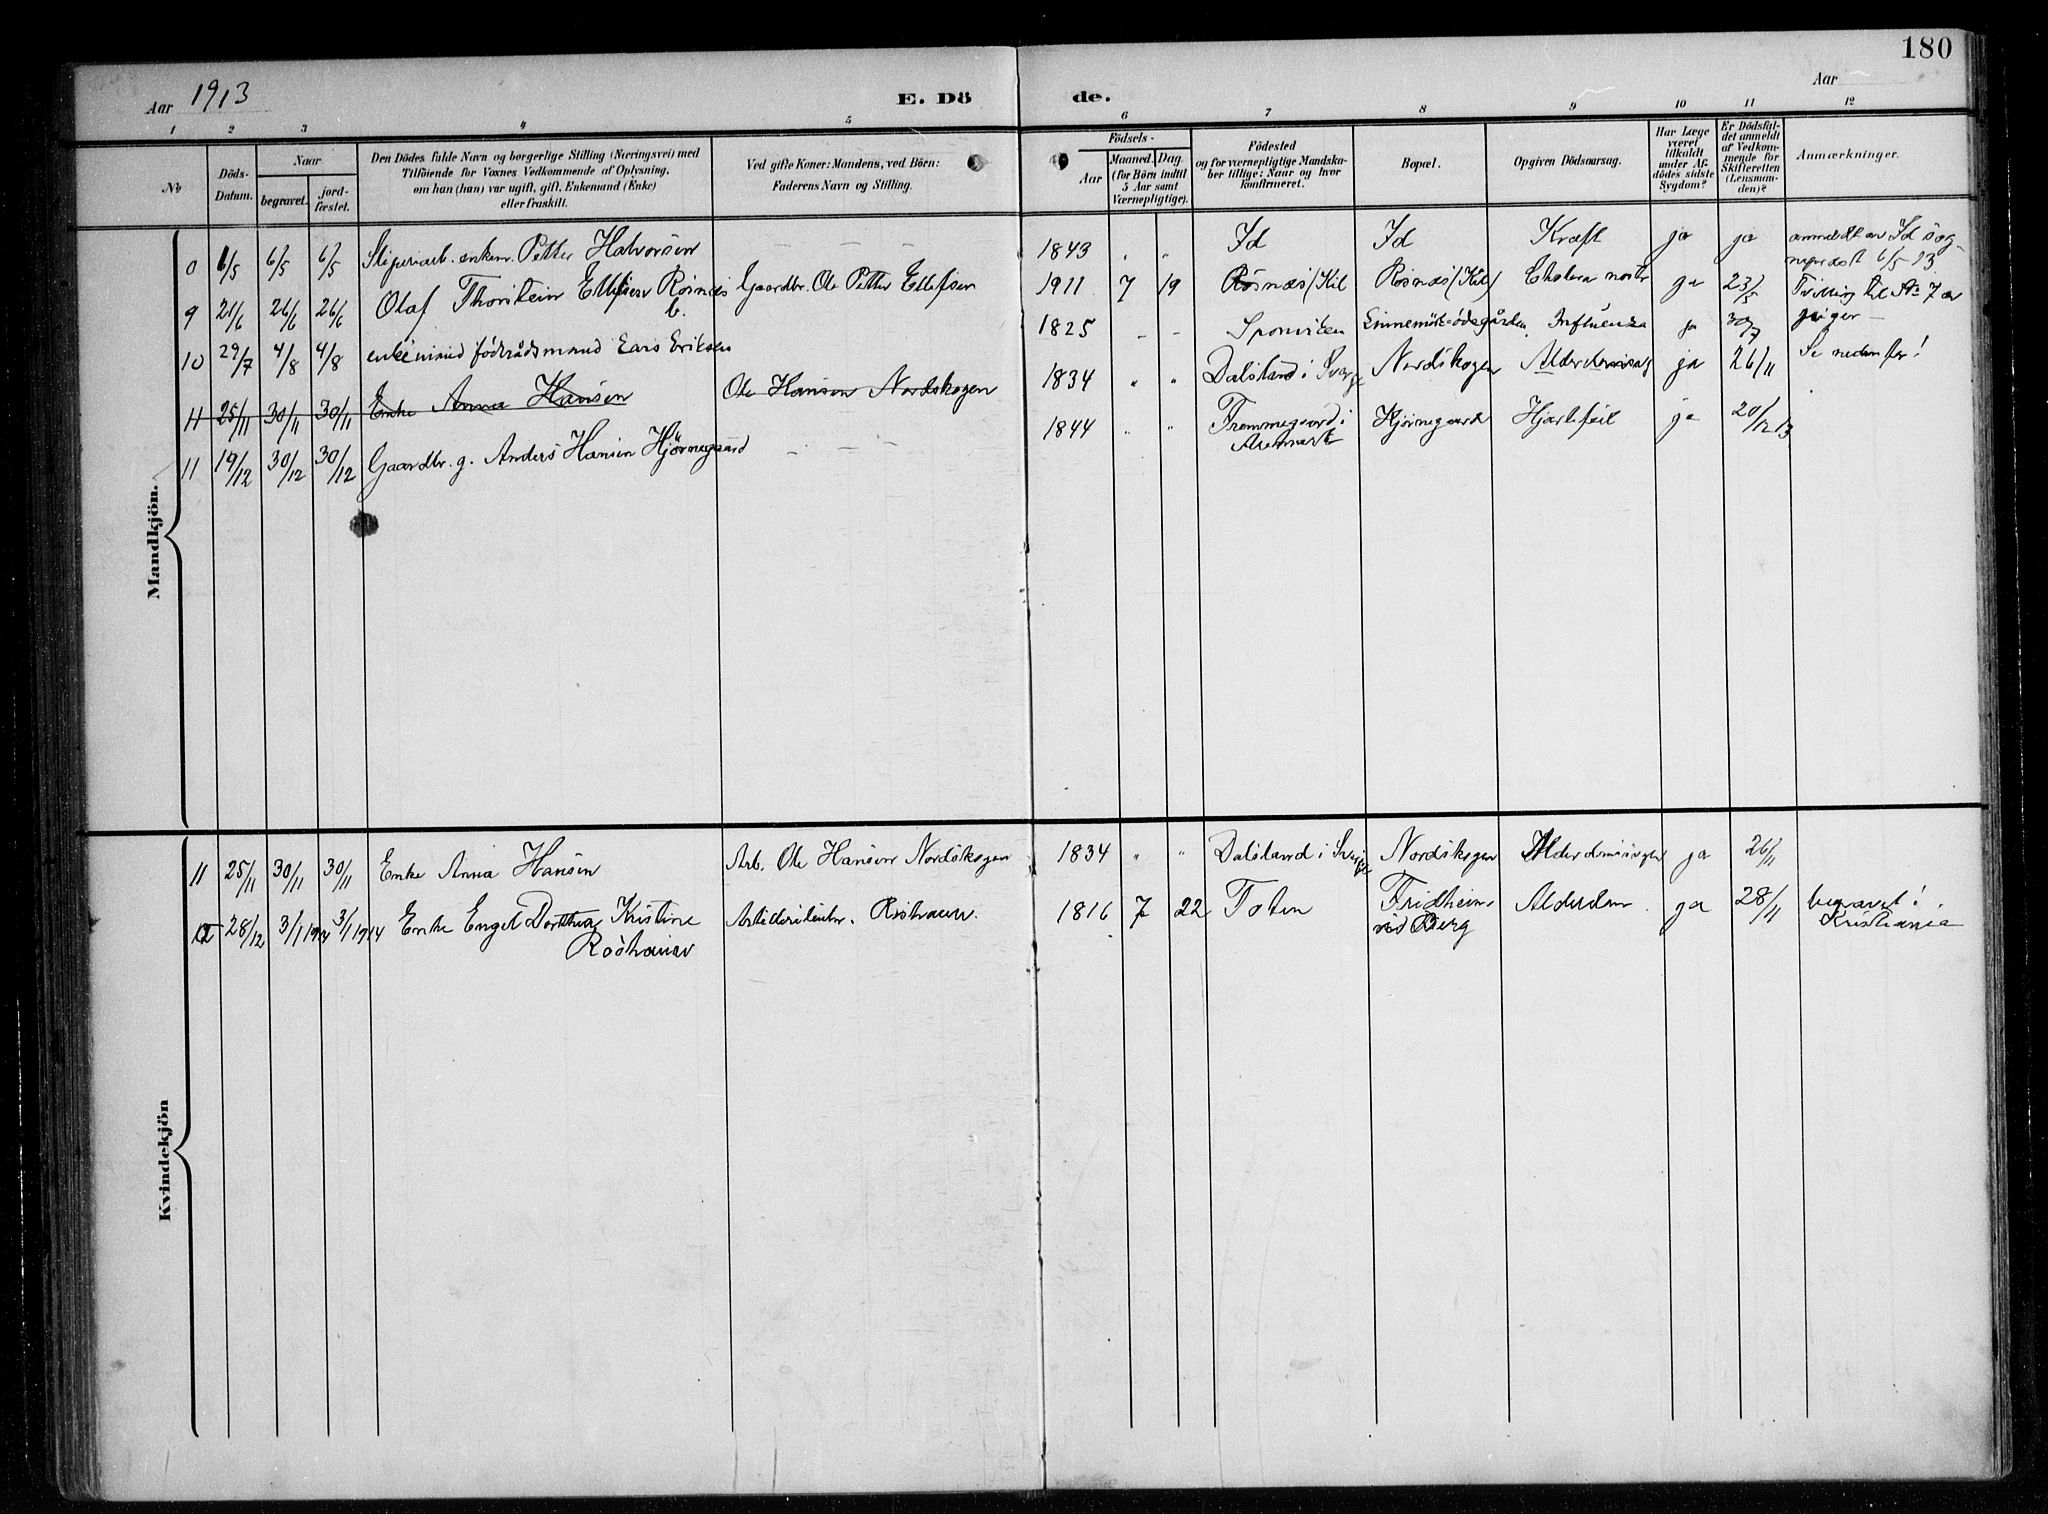 180
Aar 1913
E. Dö
de.
Aar
1 2 3 4 5 6 7 8 9 10 11 12
No
Döds-Datum.
Naar
begravet.
jord-fæstet.
Den Dödes fulde Navn og borgerlige Stilling (Næringsvei) med
Tilföiende for Voxnes Vedkommende af Oplysning,
om han (hun) var ugift, gift, Enkemand (Enke)
eller fraskilt.
Ved gifte Koner: Mandens, ved Börn:
Faderens Navn og Stilling.
Födsels-
Aar
Maaned. Dag.
(for Börn indtil
5 Aar samt
Værnepligtige).
Födested
og for værnepligtige Mandska-
ber tillige: Naar og hvor
konfirmeret.
Bopæl.
Opgiven Dödsaarsag.
Har Læge
været
tilkaldt
under Af-
dödes sidste
Sygdom?
Er Dödsfal-
det anmeldt
af Vedkom-
mende for
Skifteretten
(Lensman-
den)?
Anmærkninger.
Mandkjön.
6/5 6/5 6/5 Sliperiarb. enkem. Petter Halvorsen — — — 1843 „ „ Id Id Kræft ja ja anmeldt av Id sog-
nepræst 6/5 13
9 21/6 26/6 26/6 Olaf Thorstein Ellefsen Røsnes Gaardbr. Ole Petter Ellefsen 1911 7 19 Røsnæs (Kil Røsnæs (Kil) Cholera ja 23/5 Tvilling til No 7 av
piger —
10 29/7 4/8 4/8 enkemand födrådsmand Lars Eriksen 1825 - - Sponviken Influenza ja 30/7
11 25/11 30/11 30/11 Enke Anna Hansen Ole Hansen Nordskogen 1834 „ „ Dalsland i Sverge Nordskogen ja 26/11 Se nedenfor!
11 19/12 30/12 30/12 Gaardbr. g. Anders Hansen Hjörnegaard - - - 1844 „ „ Fremmegaard i
Aremark Hjörnegaard Hjertefeil ja 20/12 13
Kvindekjön
11 25/11 30/11 30/11 Enke Anna Hansen Arb. Ole Hansen Nordskogen 1834 „ „ Dalsland i Sverige Nordskogen ja 26/11
12 28/12 3/1 1914 3/1 1914 Enke Engel Dorthea Kristine
1816 7 22 Toten Fridheim
ved Berg Alderdom ja 28/11 begravet i
Kristiania